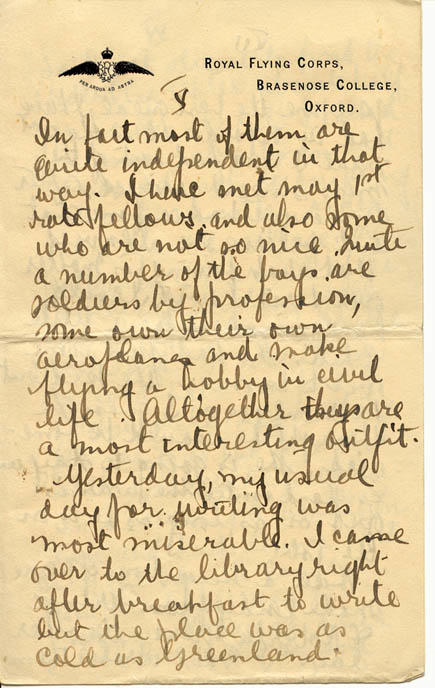 ROYAL FLYING CORPS,
BRASENOSE COLLEGE,
OXFORD.
PER ARDUA AD ASTRA
V
In fact most of them are
quite independent in that
way. I have met may 1st
rate fellows, and also some
who are not so nice. Quite
a number of the boys are
soldiers by profession,
some own their own
aeroplanes and make
flying a hobby in civil
life. Altogether they are
a most interesting outfit.
Yesterday, my usual
day for writing was
most miserable. I came
over to the library right
after breakfast to write
but the place was as
cold as Greenland.